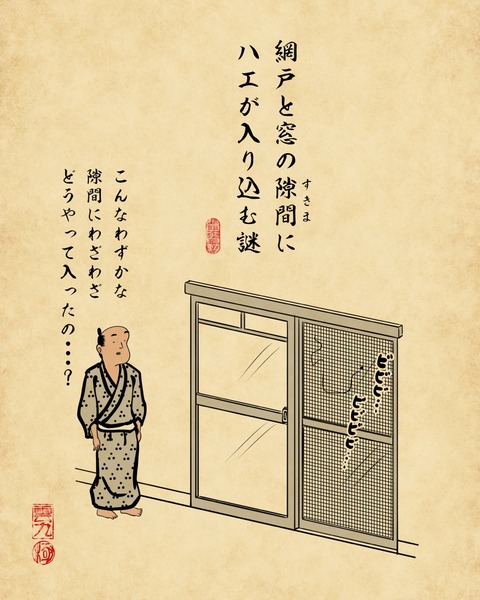 網戸と窓の隙間に
すきま
ハエが入り込む謎
こんなわずかな
隙間にわざわざ
どうやって入ったの・・・?
ビビビ・・
ヒヒヒヒ・・